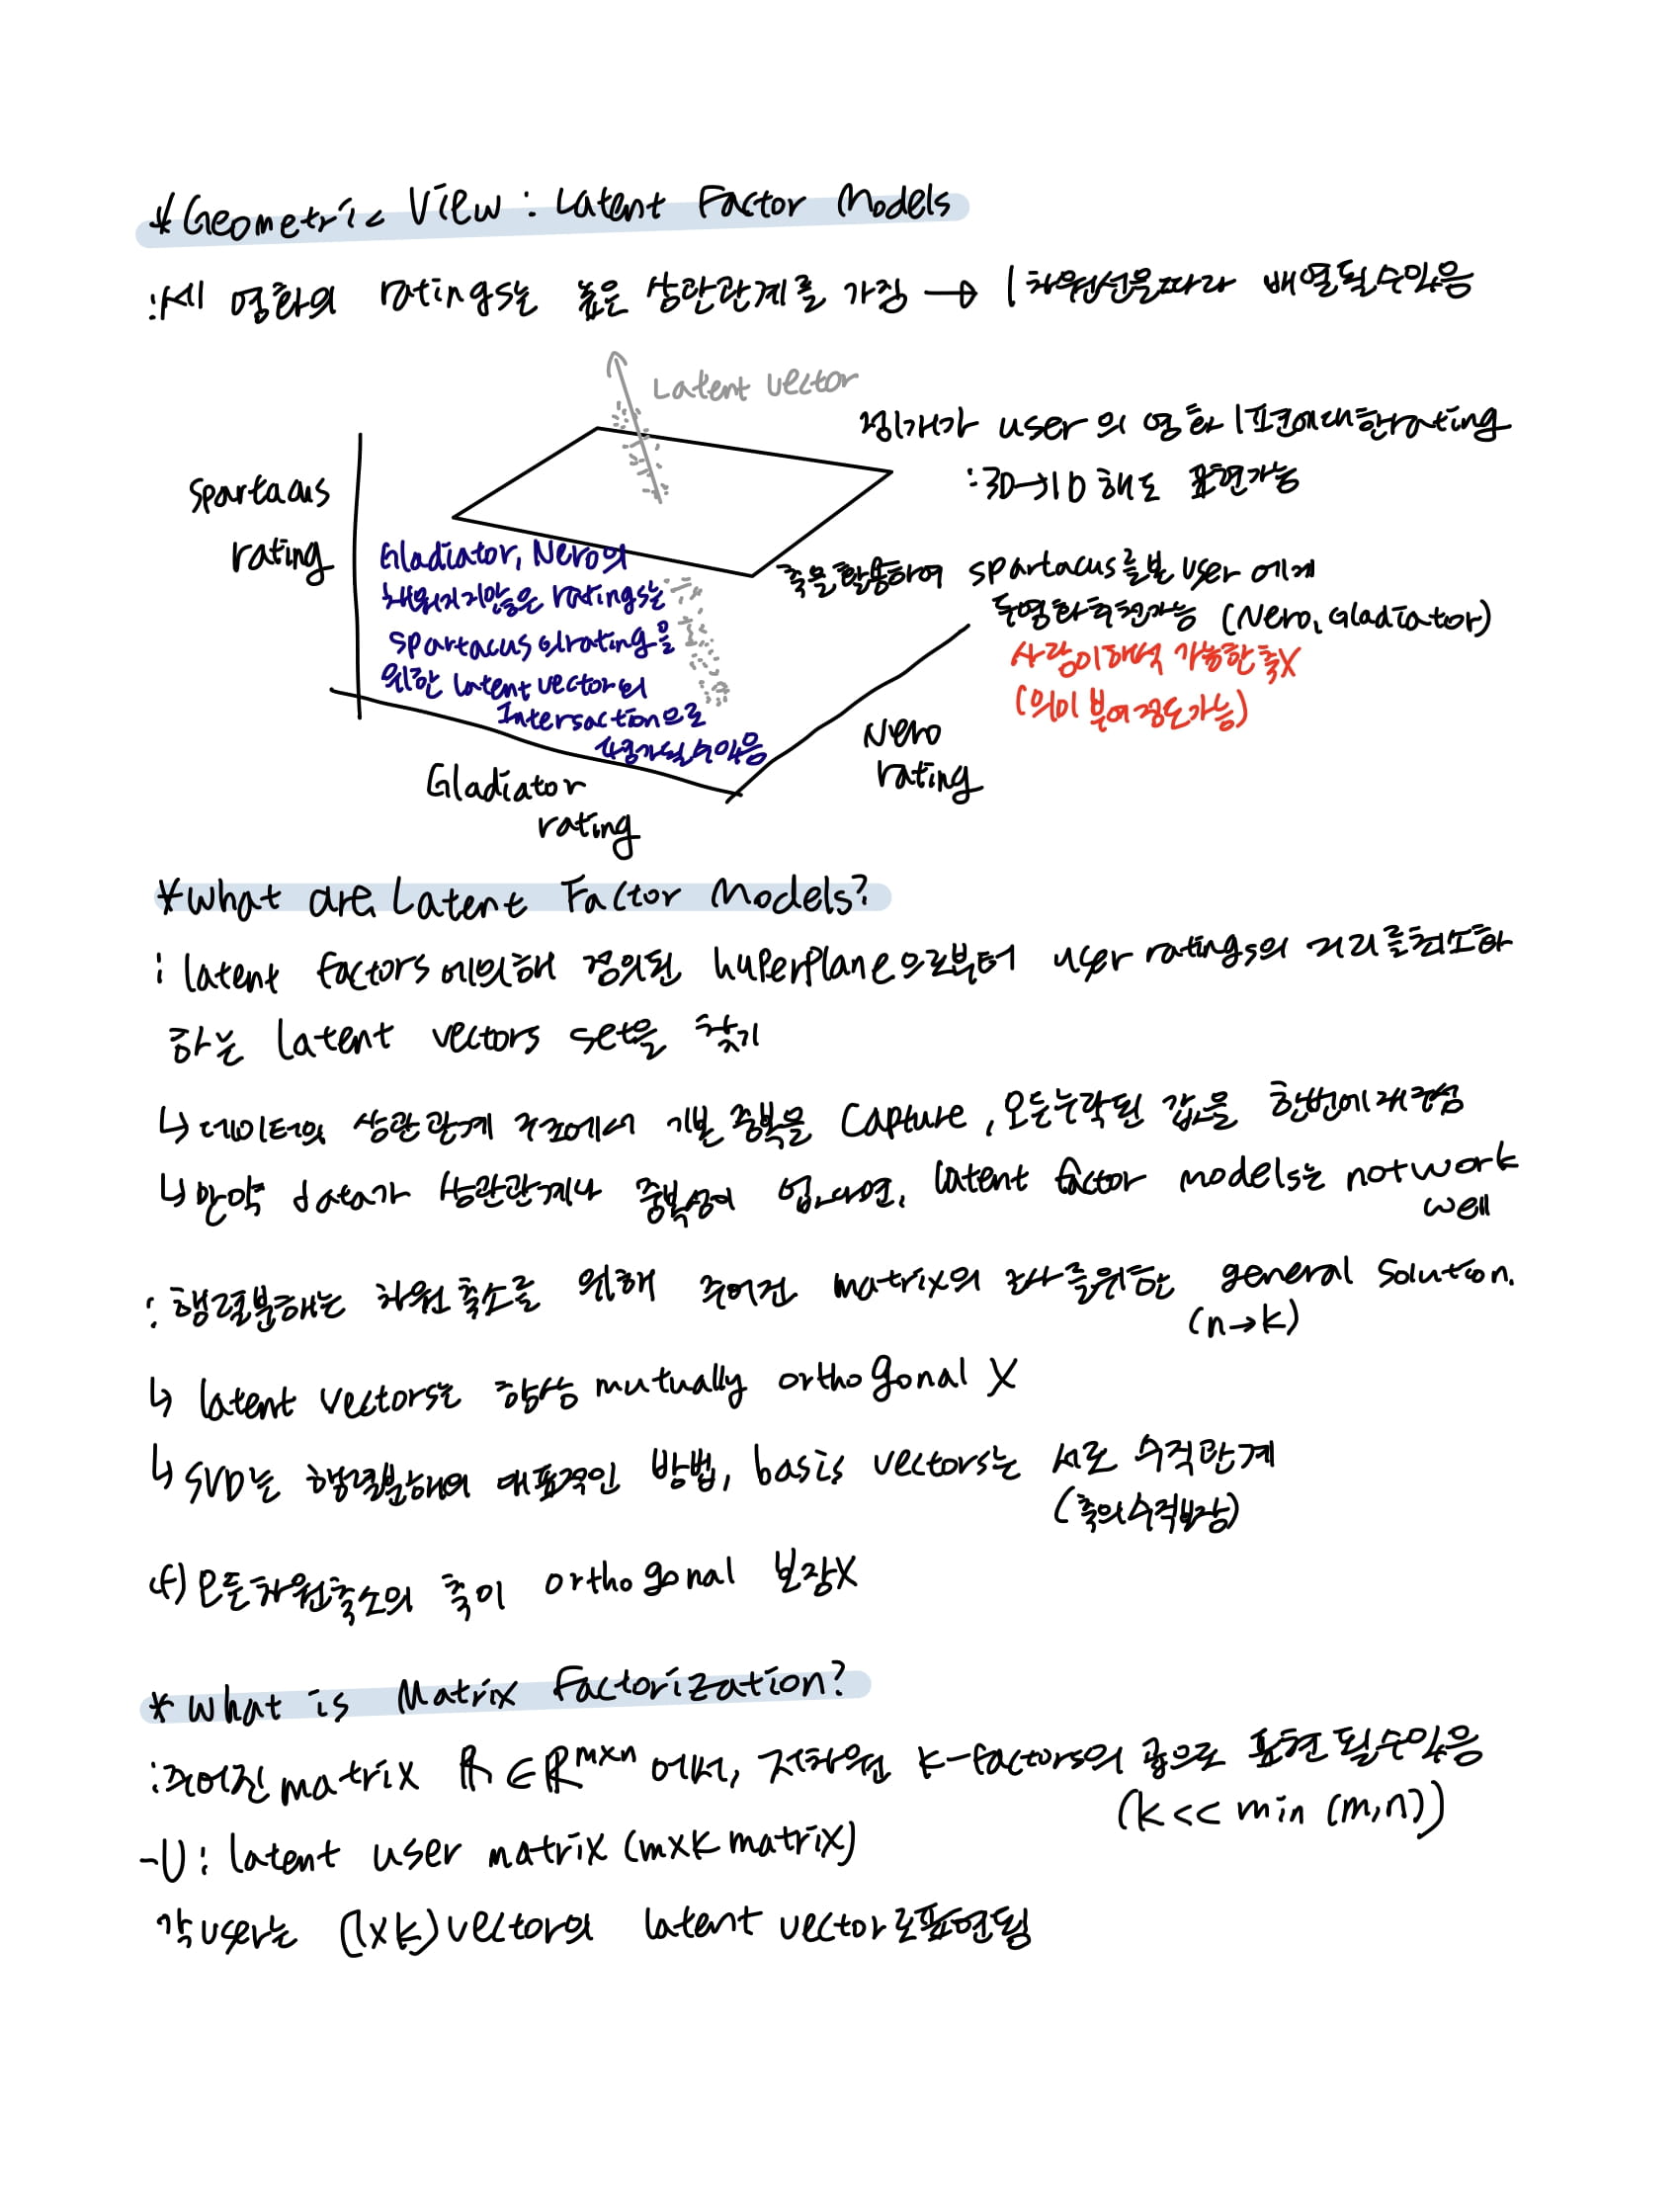 * Geometric View : Latent Factor Models
: 세 영화의 ratings는 높은 상관관계를 가짐 → 1차원선을따라 배열될수있음
Latent vector
점1개가 user의 영화 1표현에대한rating
: 3D→1D 해도 표현가능
Spartacus
rating
Gladiator, Nero의
채워지지않은 ratings는
Spartacus의rating을
위한 latent vector의
Intersaction으로
추정될수있음
축을활용하여 spartacus를본 user에게
두영화추천가능 (Nero, Gladiator)
사람이해석 가능한축X
(의미 부여정도가능)
Nero
rating
Gladiator
rating
* What are Latent Factor Models?
: latent factors에의해 정의된 huperplane으로부터 user ratings의 거리를최소화
하는 latent vectors set을 찾기
↳ 데이터의 상관관계 구조에서 기본 중복을 Capture, 모든누락된 값을 한번에재구성
↳ 만약 data가 상관관계나 중복성이 없다면, latent factor models는 not work
well
: 행렬분해는 차원축소를 위해 주어진 matrix의 근사를위한 general solution.
(n→k)
↳ latent vectors는 항상 mutually orthogonal X
↳ SVD는 행렬분해의 대표적인 방법, basis vectors는 서로 수직관계
(축의수직보장)
cf) 모든차원축소의 축이 orthogonal 보장X
* What is Matrix Factorization?
: 주어진 matrix R∈ℝ^m×n 에서, 저차원 k-factors의 곱으로 표현 될수있음
(k << min (m,n))
- U : latent user matrix (m×k matrix)
각user는 (1×k) vector의 latent vector로표현됨